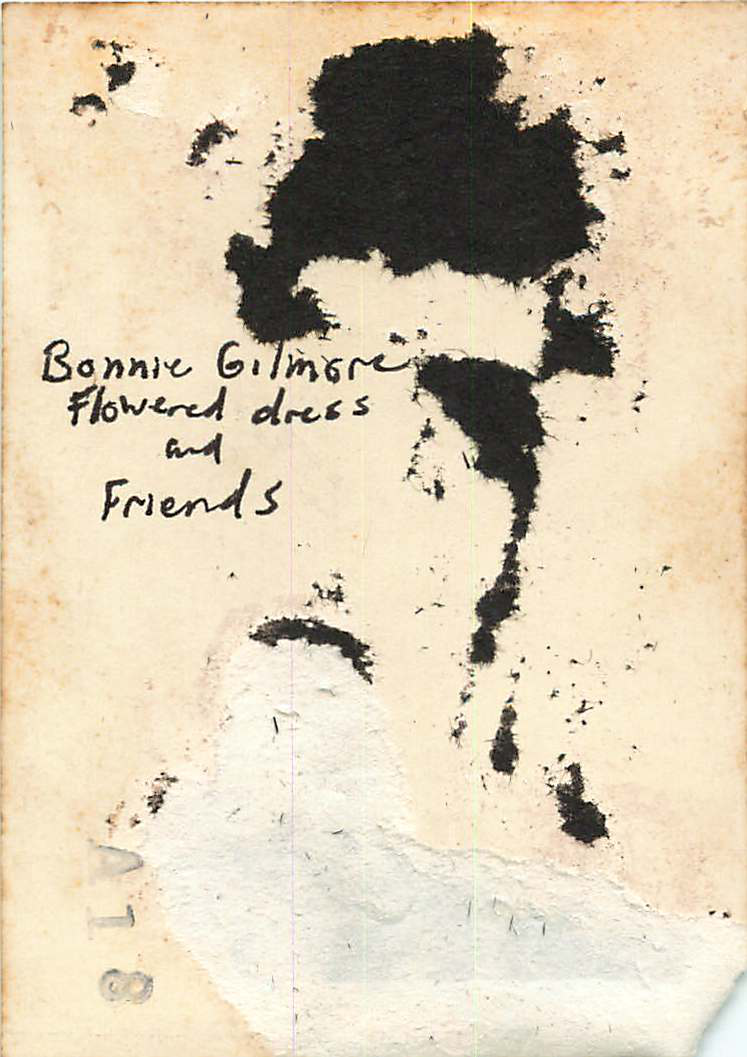 Bonnie Gilmore
Flowered dress
and
Friends
A18